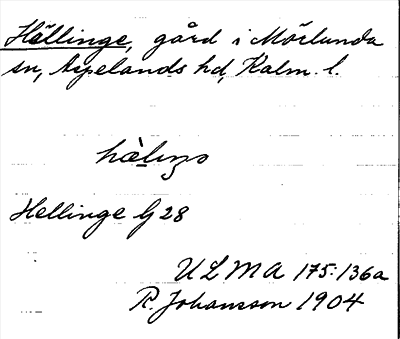 Hällinge, gård i Mörlunda
sn, Aspelands hd, Kalm. l.
Hellinge G 28
ULMA 175:136a
R. Johansson 1904